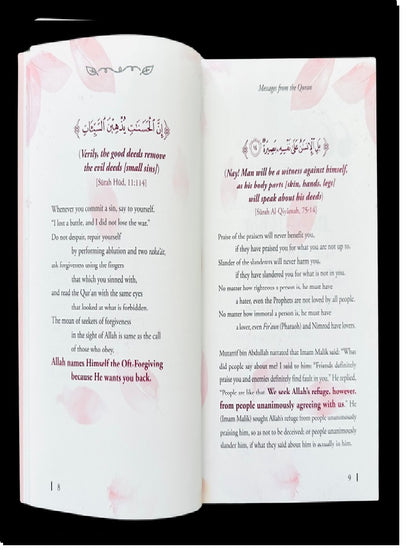 ﴿إِنَّ الْحَسَنَاتِ يُذْهِبْنَ السَّيِّئَاتِ﴾
(Verily, the good deeds remove
the evil deeds [small sins])
[Sūrah Hūd, 11:114]
Whenever you commit a sin, say to yourself,
"I lost a battle, and I did not lose the war."
Do not despair, repair yourself
by performing ablution and two raka'āt,
ask forgiveness using the fingers
that which you sinned with,
and read the Qur'an with the same eyes
that looked at what is forbidden.
The moan of seekers of forgiveness
in the sight of Allah is same as the call
of those who obey,
Allah names Himself the Oft-Forgiving
because He wants you back.
8
Messages from the Quran
﴿بَلِ الْإِنسَانُ عَلَىٰ نَفْسِهِ بَصِيرَةٌ ١٤﴾
(Nay! Man will be a witness against himself,
as his body parts [skin, hands, legs]
will speak about his deeds)
[Sūrah Al Qiyāmah, 75:14]
Praise of the praisers will never benefit you,
if they have praised you for what you are not up to.
Slander of the slanderers will never harm you,
if they have slandered you for what is not in you.
No matter how righteous a person is, he must have
a hater, even the Prophets are not loved by all people.
No matter how immoral a person is, he must have
a lover, even Fir'aun (Pharaoh) and Nimrod have lovers.
Mutarrif bin Abdullah narrated that Imam Malik said: "What
did people say about me? I said to him: "Friends definitely
praise you and enemies definitely find fault in you." He replied,
"People are like that. We seek Allah's refuge, however,
from people unanimously agreeing with us." He
(Imam Malik) sought Allah's refuge from people unanimously
praising him, so as not to be deceived; or people unanimously
slander him, if what they said about him is actually in him.
9